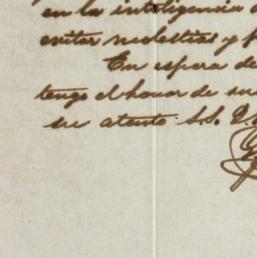 en la inteligencia d
evitar molestias y p
En espera de
tengo el honor de su
su atento S.S. Q.